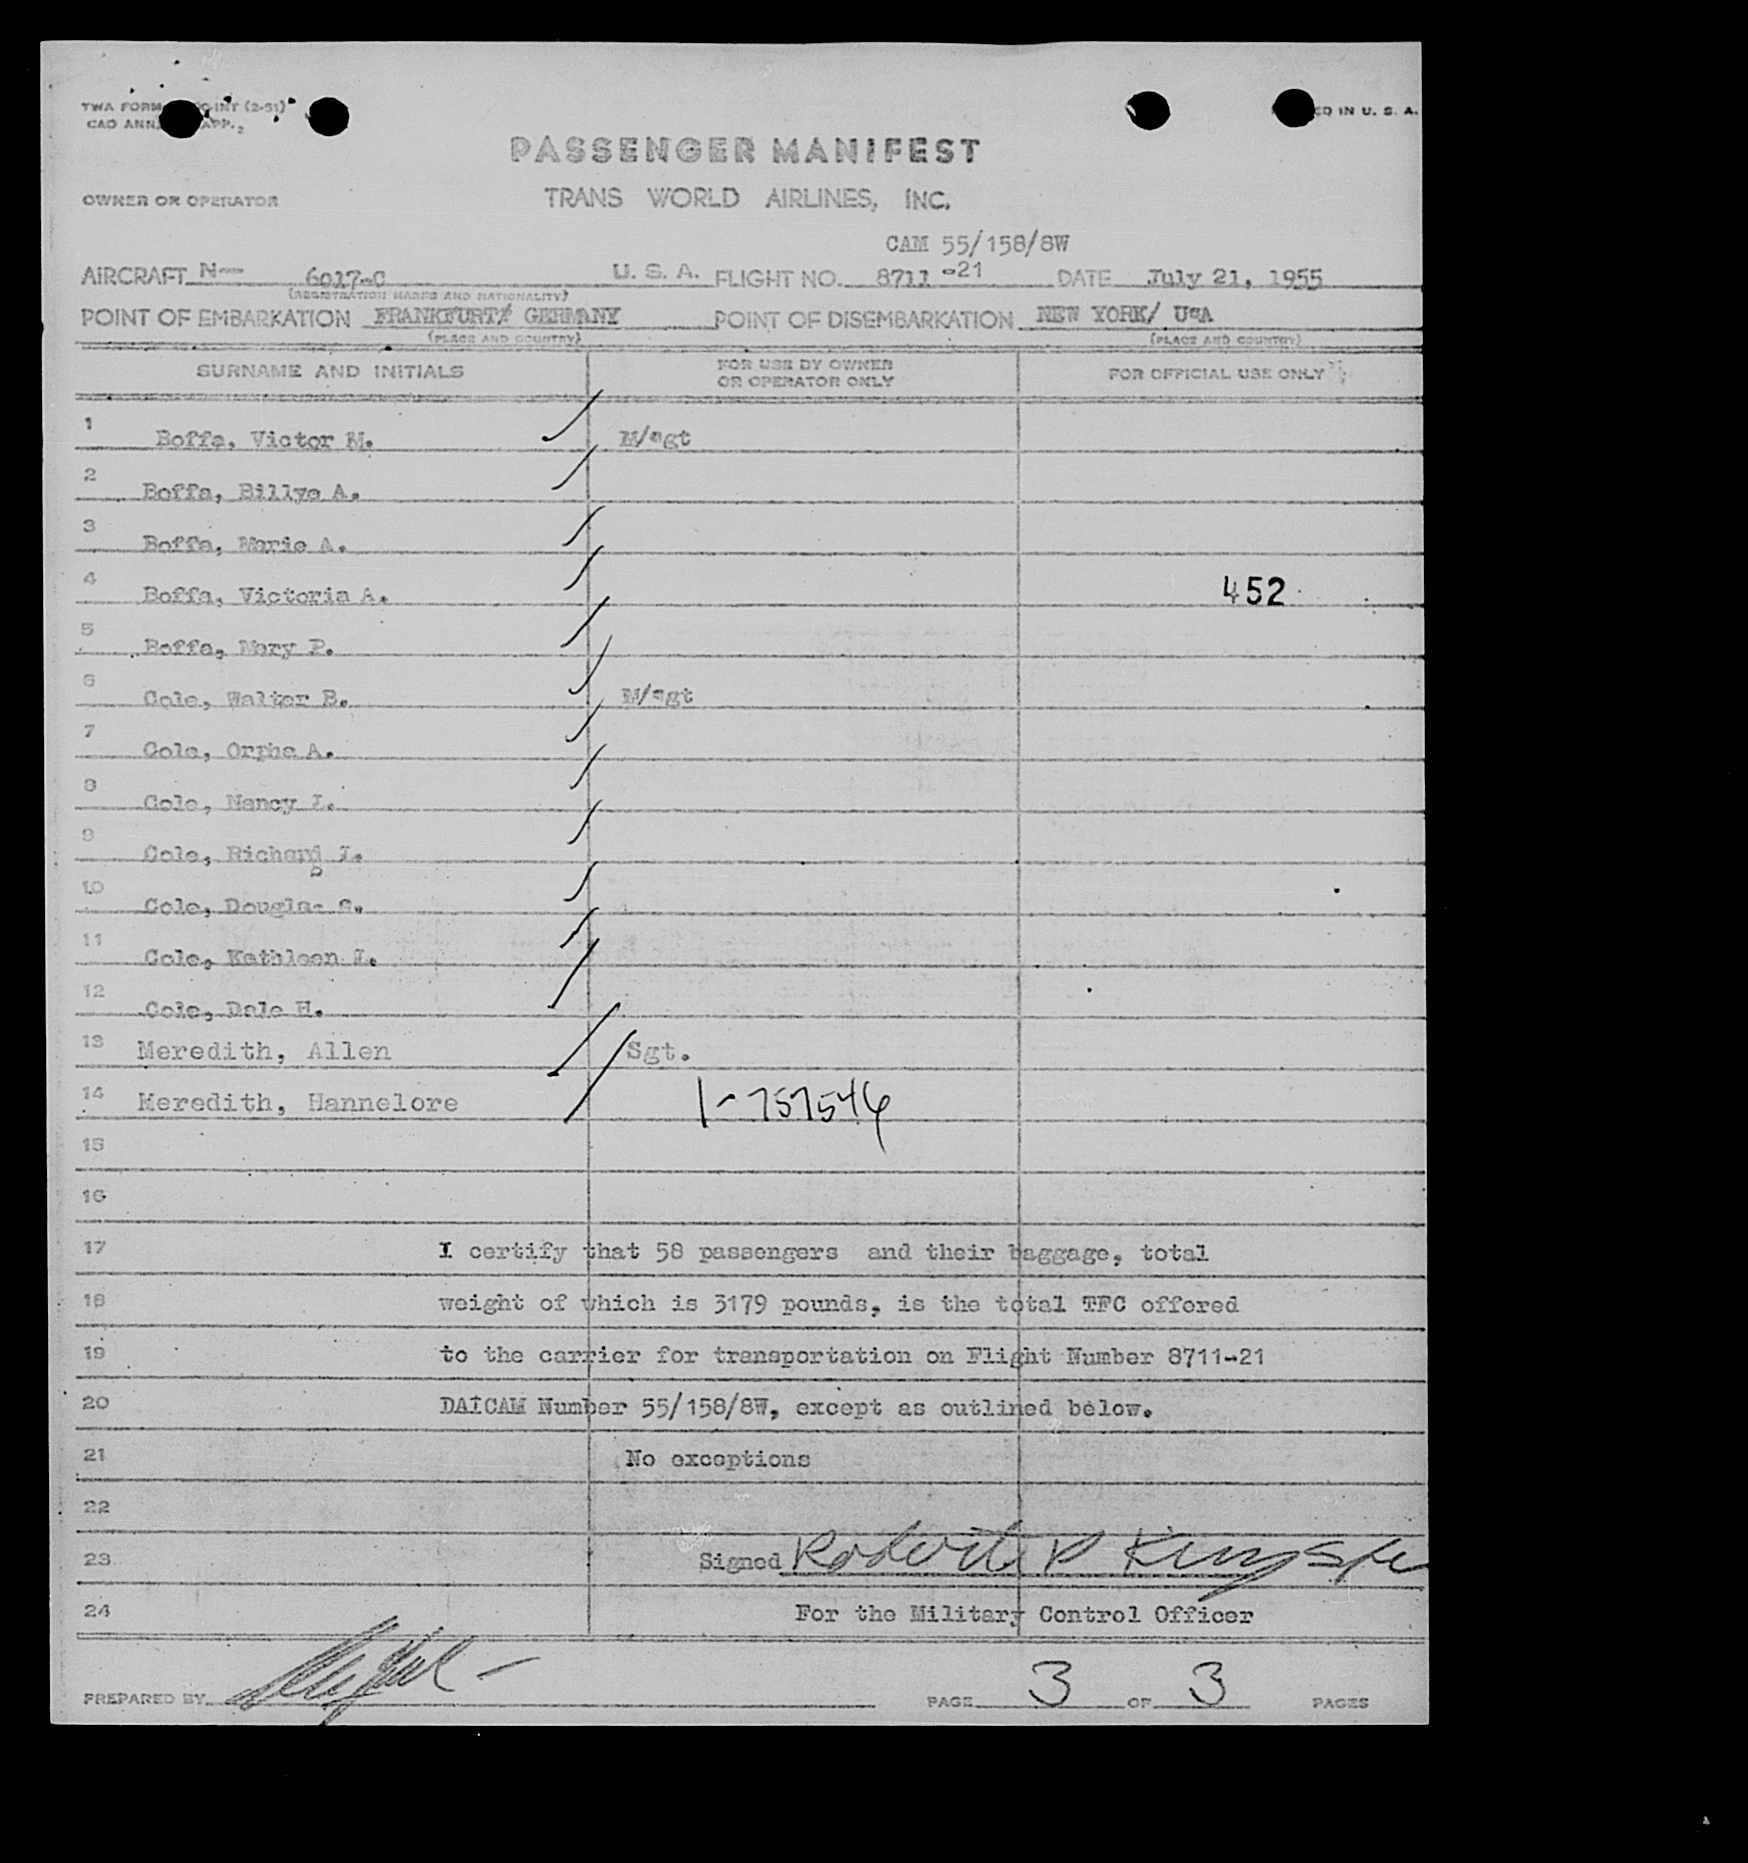 TWA FORM INT (2-51)
CAO ANN. APP. 2
ED IN U. S. A.
PASSENGER MANIFEST
OWNER OR OPERATOR TRANS WORLD AIRLINES, INC.
CAM 55/158/8W
AIRCRAFT N-- 6017-C U. S. A. FLIGHT NO. 8711 -21 DATE July 21, 1955
(REGISTRATION MARKS AND NATIONALITY)
POINT OF EMBARKATION FRANKFURT/ GERMANY POINT OF DISEMBARKATION NEW YORK/ UsA
(PLACE AND COUNTRY) (PLACE AND COUNTRY)
SURNAME AND INITIALS FOR USE BY OWNER OR OPERATOR ONLY FOR OFFICIAL USE ONLY
1 Boffa, Victor M. M/sgt
2 Boffa, Billye A.
3 Boffa, Marie A.
4 Boffa, Victoria A. 452
5 Boffa, Mary P.
6 Cole, Walter B. M/sgt
7 Cole, Orpha A.
8 Cole, Nancy I.
9 Cole, Richard I.
10 Cole, Douglas S.
11 Cole, Kathleen I.
12 Cole, Dale H.
13 Meredith, Allen Sgt.
14 Meredith, Hannelore 1-757546
15
16
17 I certify that 58 passengers and their baggage, total
18 weight of which is 3179 pounds, is the total TFC offered
19 to the carrier for transportation on Flight Number 8711-21
20 DAICAM Number 55/158/8W, except as outlined below.
21 No exceptions
22
23 Signed Robert P
24 For the Military Control Officer
PREPARED BY PAGE 3 OF 3 PAGES